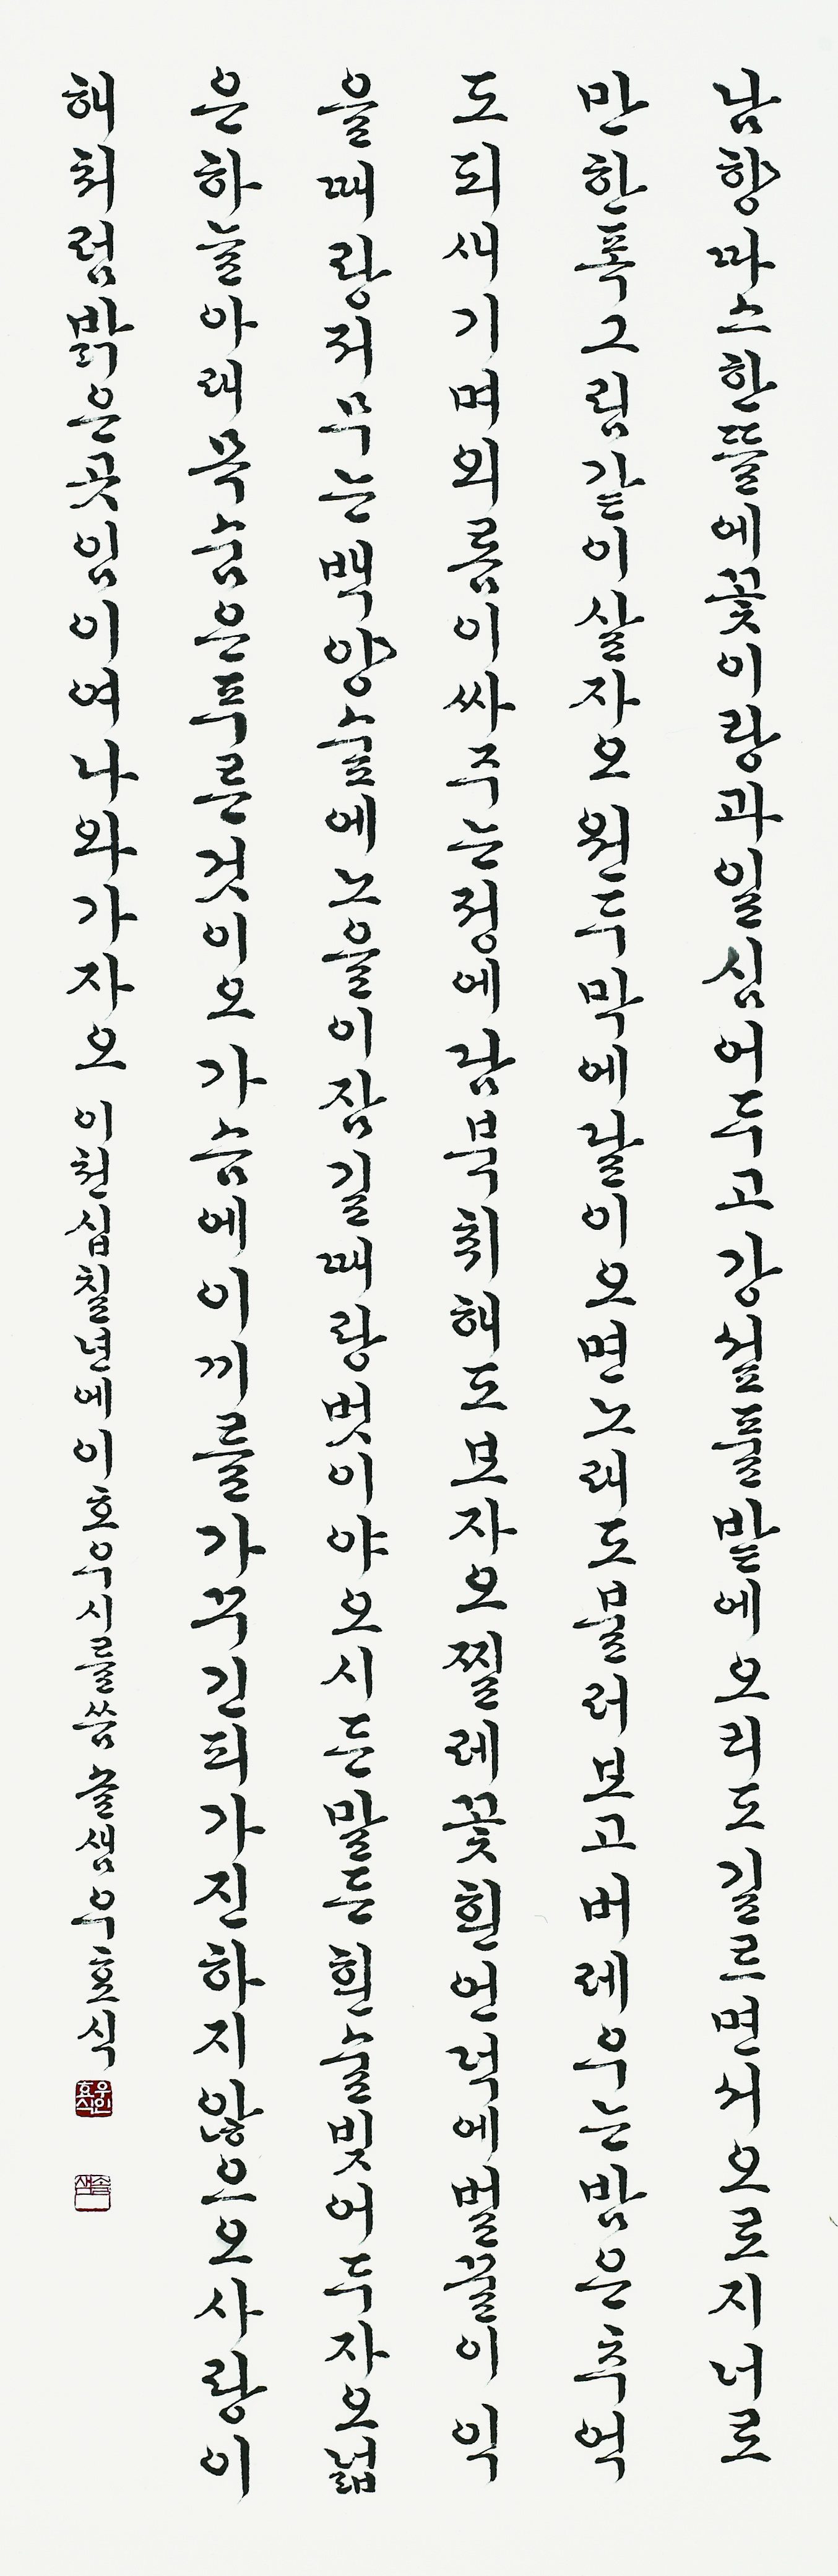 남향따스한뜰에꽃이랑과일심어두고강섶풀밭에오리도길르면서오로지너로
만한폭그림같이살자오원두막에달이오면노래도불러보고버레우는밤은추억
도되새기며외롬이싸주는정에담북취해도보자오찔레꽃흰언덕에벌꿀이익
을때랑저무는백양숲에노을이잠길때랑벗이야오시든말든흰술빚어두자오넓
은하늘아래목숨은푸른것이오가슴에이끼를가꾸긴피가진하지않으오사랑이
해처럼밝은곳임이여나와가자오 이천십칠년에이호우시를씀솔샘우효식
우인효식
솔샘